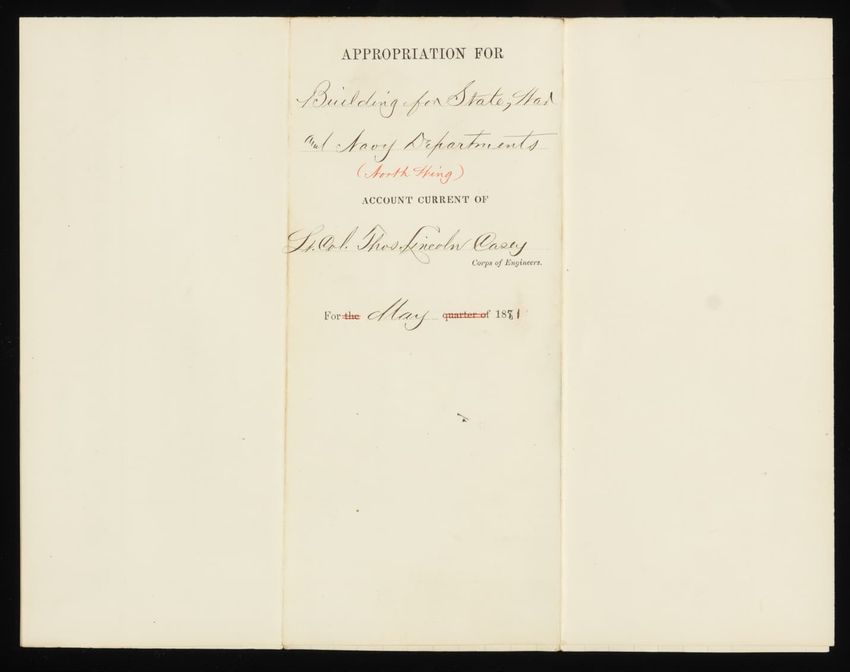 APPROPRIATION FOR
Building for State, War
and Navy Departments
(North Wing)
ACCOUNT CURRENT OF
Lt. Col. Thos. Lincoln Casey
Corps of Engineers.
For the May quarter of 1881